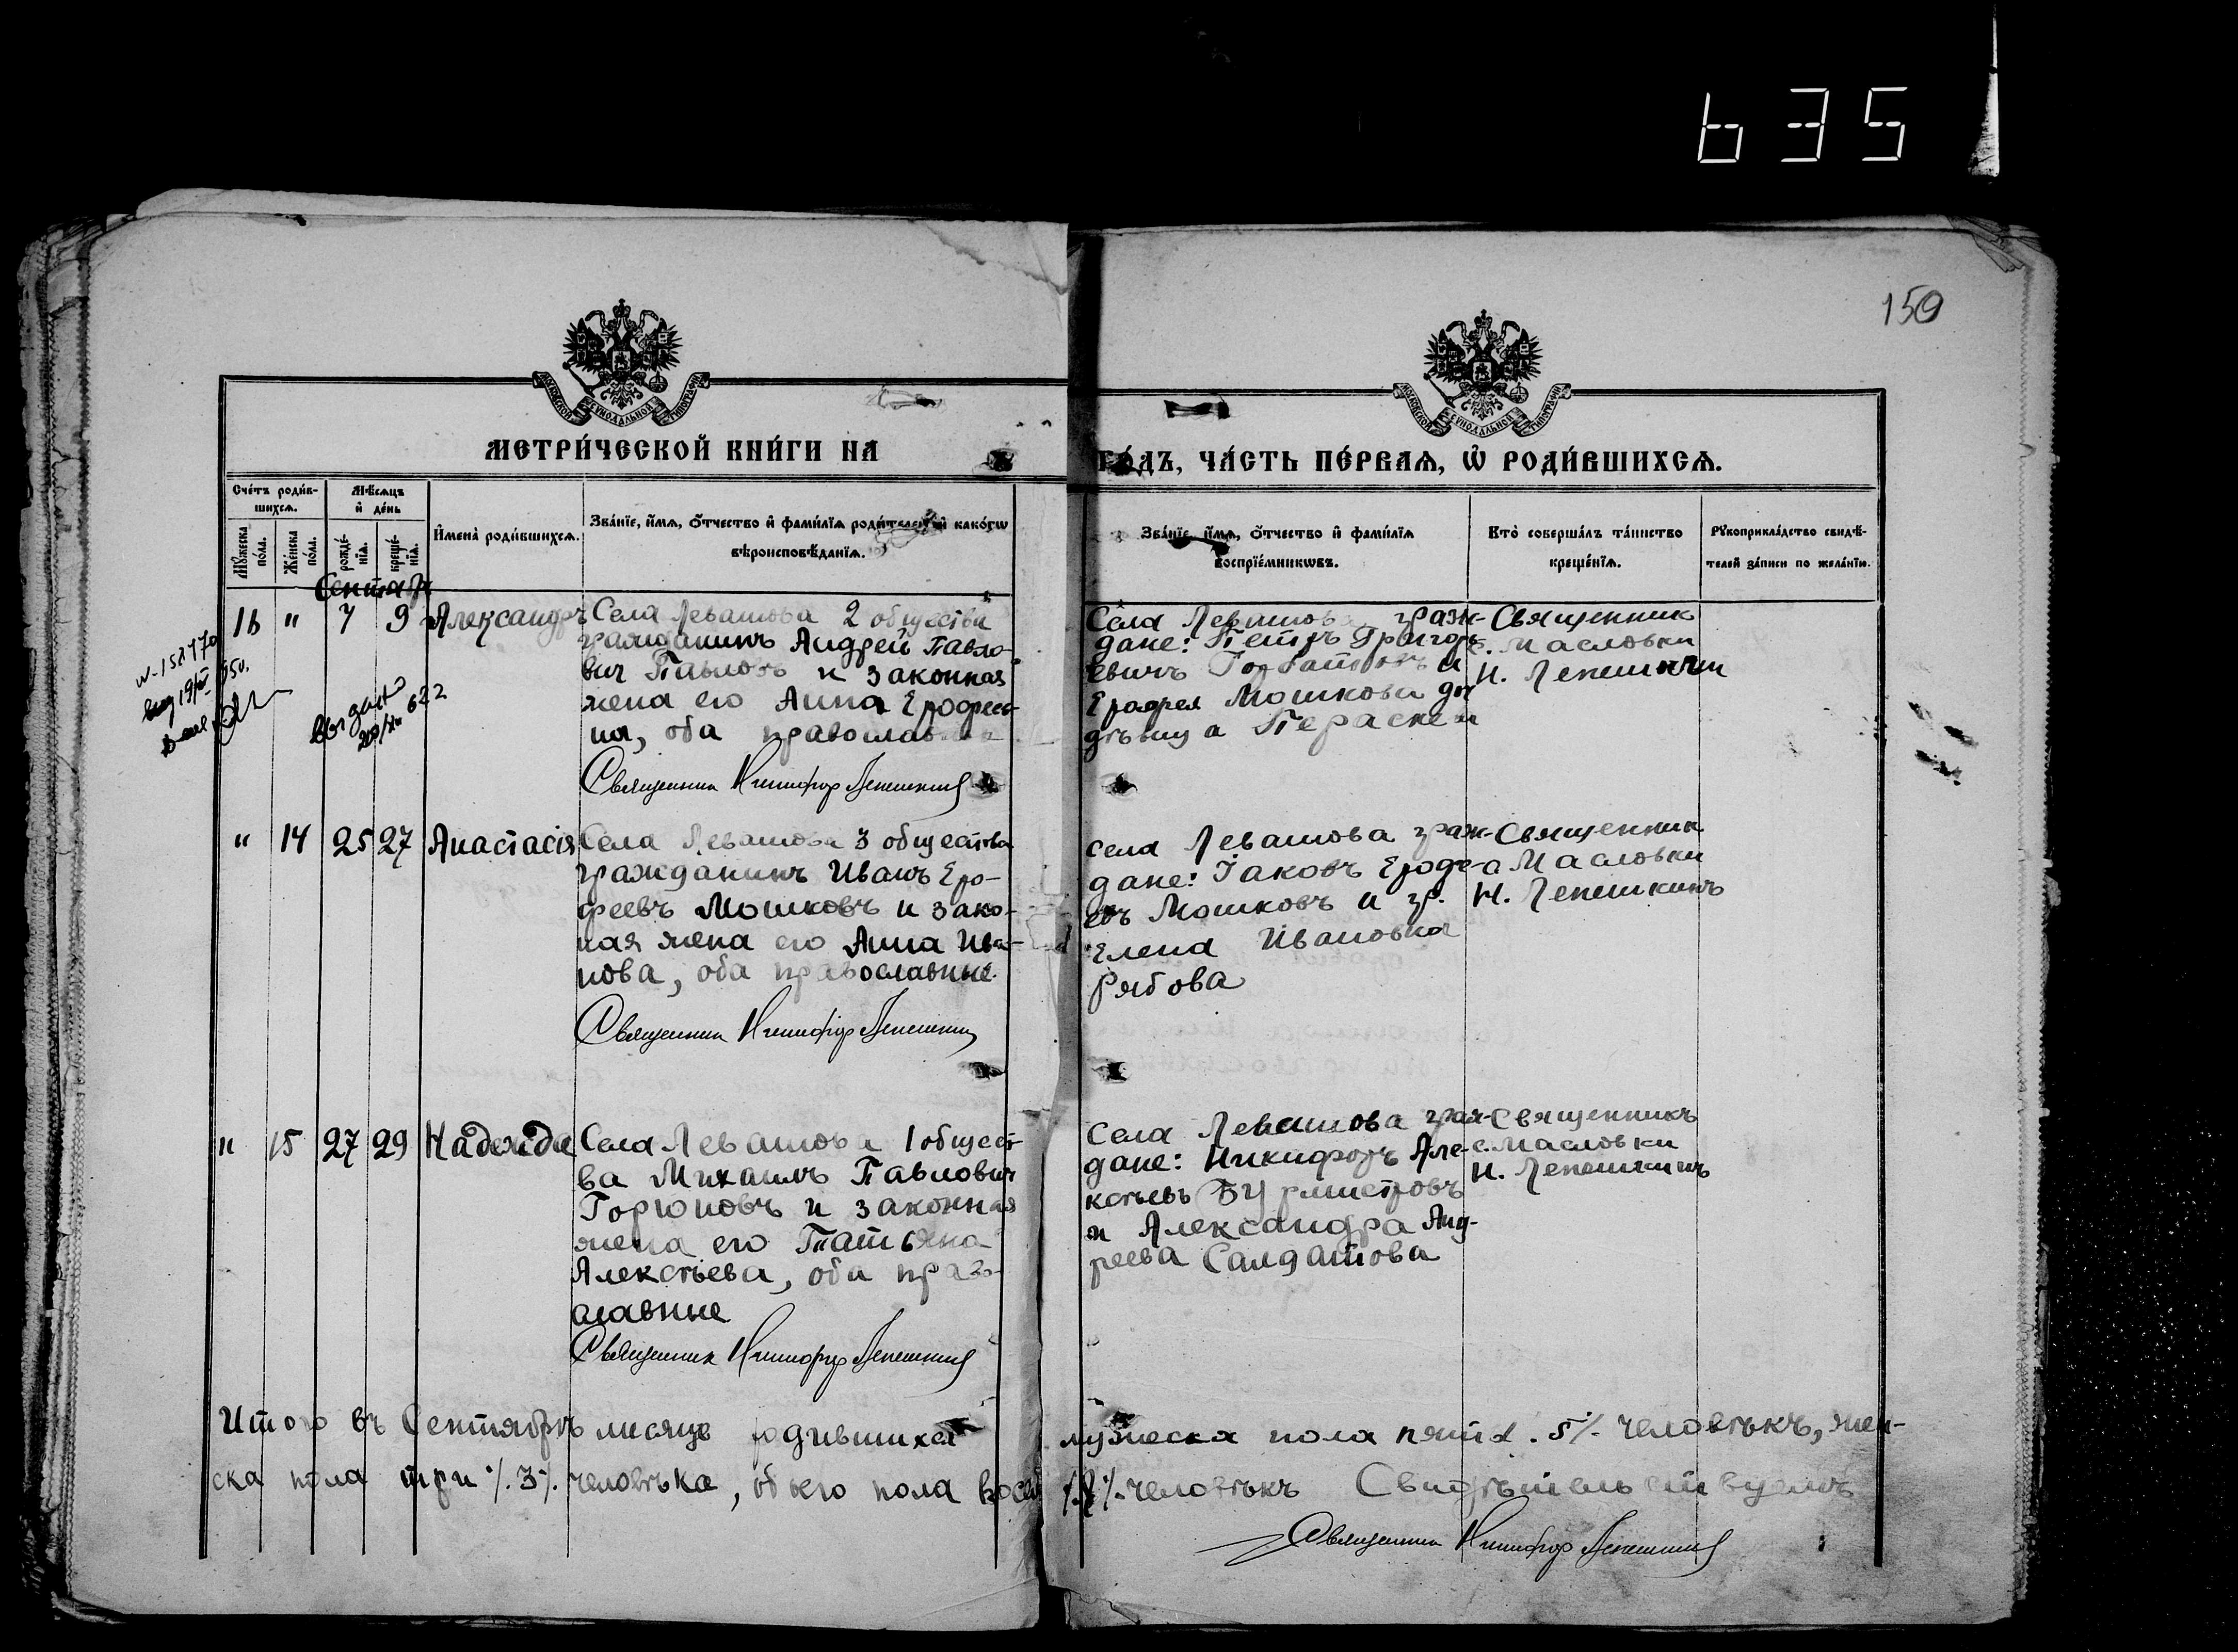 635
150
МОСКОВСКОЙ СѴНОДАЛЬНОЙ ТИПОГРАФІИ
МОСКОВСКОЙ СѴНОДАЛЬНОЙ ТИПОГРАФІИ
МЕТРИ́ЧЕСКОЙ КНИ́ГИ НА
ГО́ДЪ, ЧА́СТЬ ПЕ́РВАѦ, Ѡ҆ РОДИ́ВШИХСѦ.
Сче́тъ роди́в-
шихсѧ.
Мѣ́сѧцъ
и҆ де́нь
Мꙋ́жеска по́ла.
Же́нска по́ла.
рожде́нїѧ.
креще́нїѧ.
И҆мена̀ роди́вшихсѧ.
Зва́нїе, и҆́мѧ, ѻ҆́тчество и҆ фами́лїѧ роди́телей и҆ како́гѡ
вѣроисповѣ́данїѧ.
Зва́нїе, и҆́мѧ, ѻ҆́тчество и҆ фами́лїѧ
воспрїе́мникѡвъ.
Кто̀ соверша́лъ та́инство
креще́нїѧ.
Рꙋкоприкла́дство свидѣ́-
телей за́писи по жела́нїю.
Сентябр
16 " 7 9 Александръ
Села Левашова 2 общества
гражданинъ Андрей Павло-
вич Павловъ и законная
жена его Анна Ерофее-
на, оба православн
Священник Никифор Лепешкин
Села Левашова граж-
дане: Петръ Григорь-
евичъ Горбатовъ и
Ерофея Мошкова до
дѣвица Пераскеи
Священник
с. Масловки
Н. Лепешкин
выдано
622
" 14 25 27 Анастасія
Села Левашова 3 общества
гражданинъ Иванъ Еро-
феевъ Мошковъ и зако-
ная жена его Анна Ива-
нова, оба православные.
Священник Никифор Лепешкин
села Левашова граж-
дане: Іаковъ Ерофе-
евъ Мошковъ и гр.
Елена Ивановна
Рябова
Священник
с Масловки
Н. Лепешкинъ
" 15 27 29 Надежда
Села Левашова 1 общест-
ва Михаилъ Павлович
Горюновъ и законная
жена его Татьяна
Алексѣева, оба право-
славные
Священник Никифор Лепешкин
Села Левашова граж-
дане: Никифоръ Але-
ксѣевъ Бурмистровъ
и Александра Анд-
реева Салдатова
Священникъ
с. Масловки
Н. Лепешкинъ
Итого въ Сентябрѣ мисяце родившихся мужеска пола пять ./.5./. человѣкъ, жен-
ска пола три ./.3./. человѣка, обоего пола восемь ./.8./. человѣкъ Свидѣтельствуемъ
Священник Никифор Лепешкин